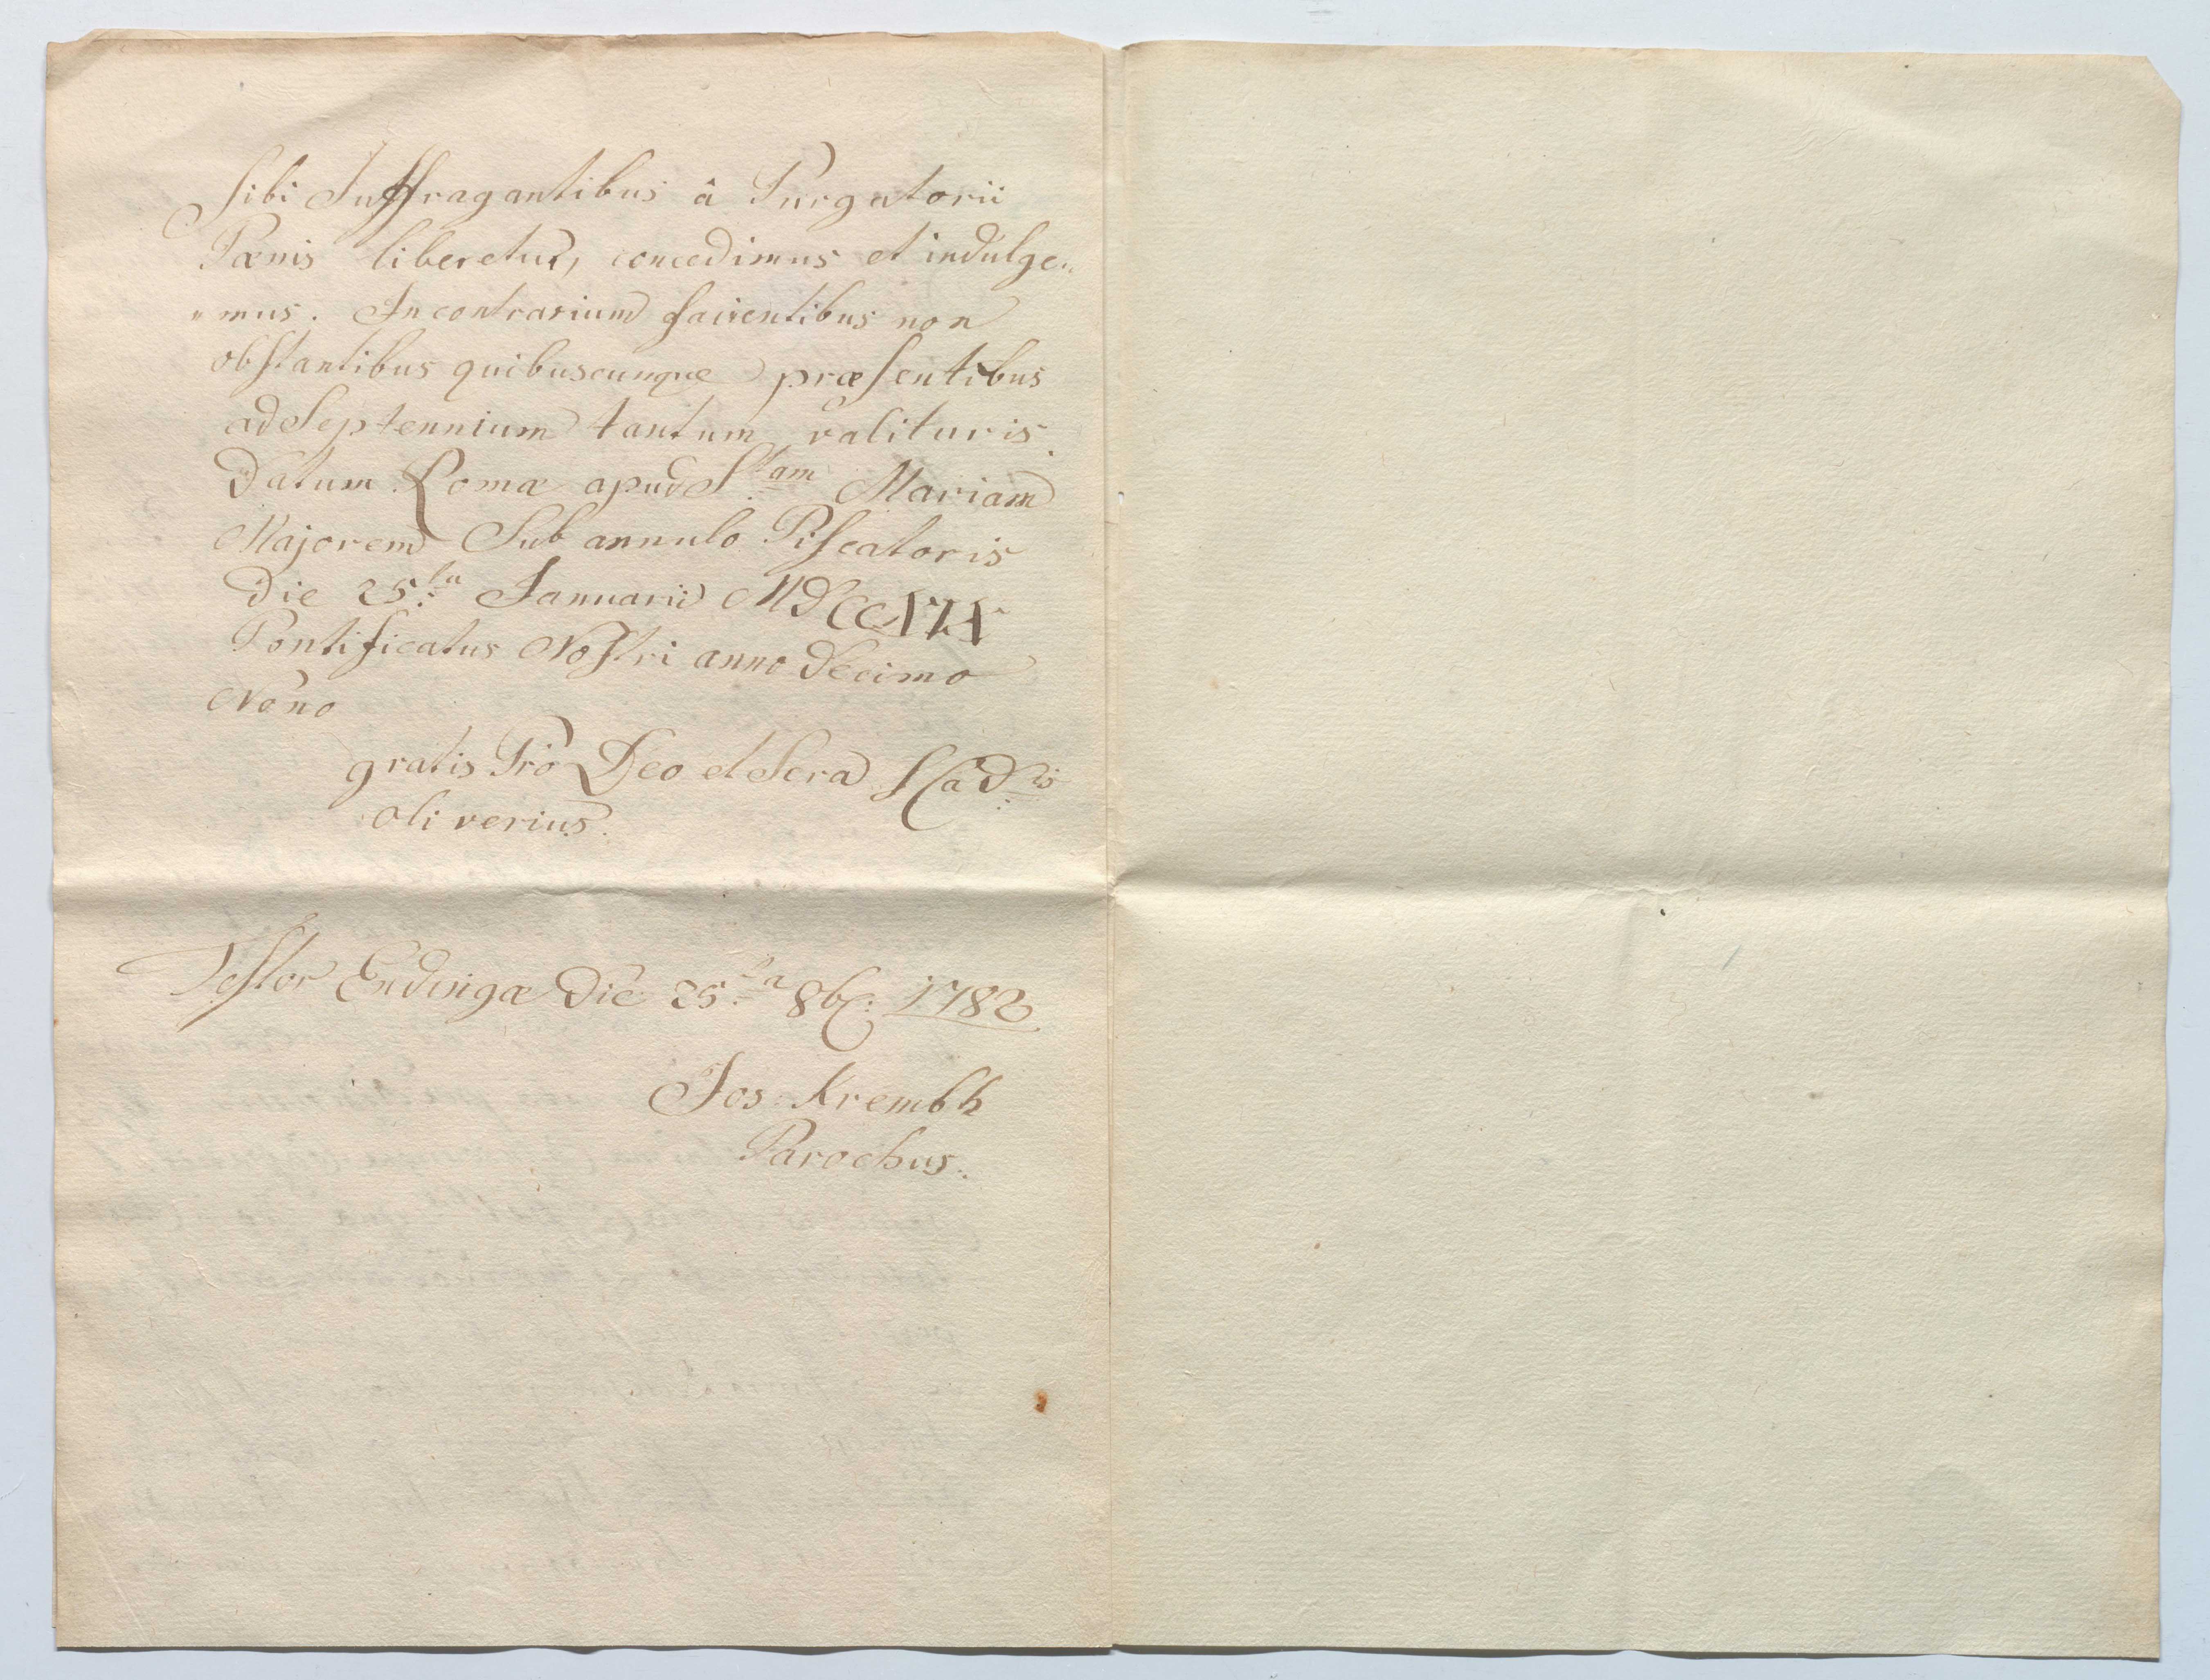 Sibi Suffragantibus â Purgatorii
Pœnis liberetur, concedimus et indulge„
„mus. In contrarium facientibus non
obstantibus quibuscunque præsentibus
ad Septennium tantum valituris.
Datum Romæ apud S.tam Mariam
Majorem Sub annulo Piscatoris
Die 25.ta Januarii
Pontificatus Nostri anno Decimo
Nono
gratis Pro Deo et Scra
oliverius.
Testor Endingæ Die 25.ta 8b: 1782
Jos: Krembh
Parochus.